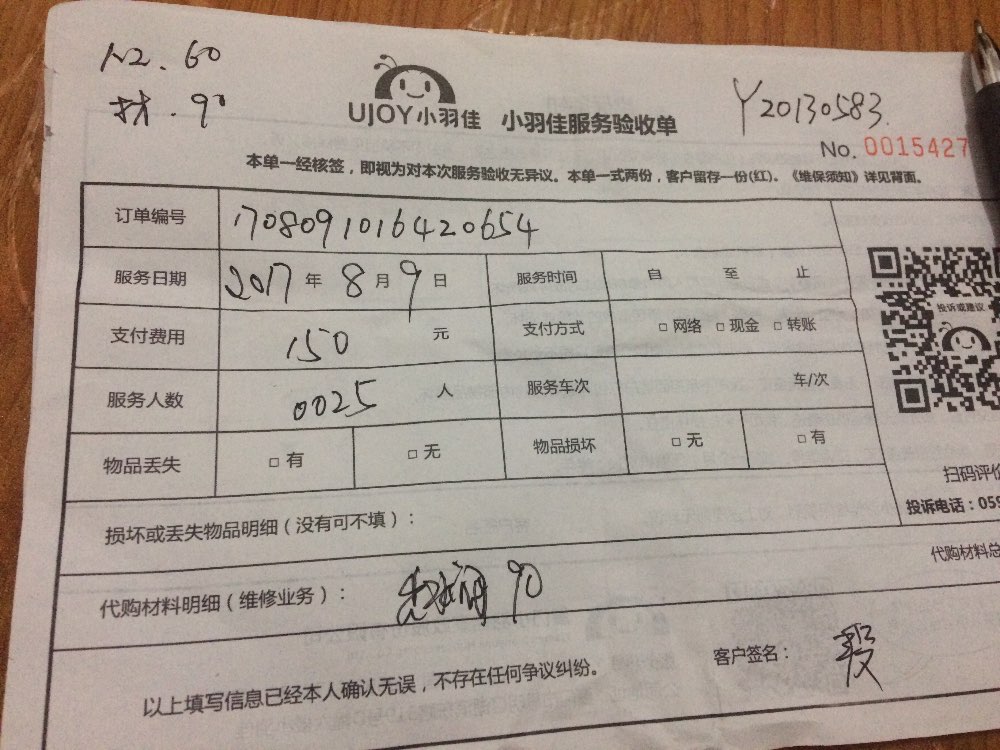 12.60
材.90
UJOY小羽佳 小羽佳服务验收单
Y20130583
No. 0015427
本单一经核签，即视为对本次服务验收无异议。本单一式两份，客户留存一份(红)。《维保须知》详见背面。
订单编号 1708091016420654
服务日期 2017年8月9日 服务时间 自 至 止
支付费用 150 元 支付方式 □网络 □现金 □转账
投诉或建议
服务人数 0025 人 服务车次 车/次
物品丢失 □有 □无 物品损坏 □无 □有
扫码评价
投诉电话：059
损坏或丢失物品明细（没有可不填）：
代购材料总
代购材料明细（维修业务）： 90
以上填写信息已经本人确认无误，不存在任何争议纠纷。 客户签名： 段